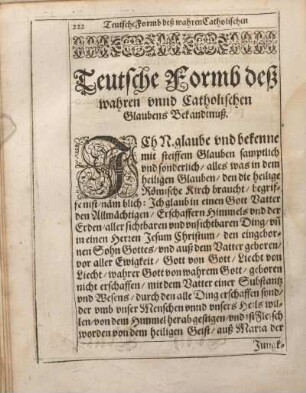 222 Teutsche Formb deß wahren Catholischen
Teutsche Formb deß
wahren vnnd Catholischen
Glaubens Bekandtnuß.
ICh N. glaube vnd bekenne
mit steiffem Glauben samptlich
vnd sonderlich / alles was in dem
heiligen Glauben / den die heilige
Römische Kirch braucht / begrif-
fe nist / näm̃lich: Ich glaub in einen Gott Vatter
den Allmächtigen / Erschaffern Himmels vnd der
Erden / aller sichtbaren vnd vnsichtbaren Ding / vñ
in einen Herren Jesum Christum / den eingebor-
nen Sohn Gottes / vnd auß dem Vatter geboren /
vor aller Ewigkeit / Gott von Gott / Liecht von
Liecht / wahrer Gott von wahrem Gott / geboren
nicht erschaffen / mit dem Vatter einer Substantz
vnd Wesens / durch den alle Ding erschaffen sond /
der vmb vnser Menschen vnnd vnsers Heils wil-
len / von dem Himmel herab gestigen / vnd ist Fleisch
worden von dem heiligen Geist / auß Maria der
Jungk-